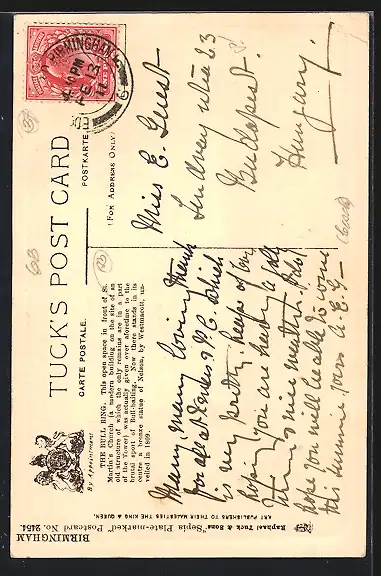 TUCK'S POST CARD
CARTE POSTALE. POSTKARTE
(FOR ADDRESS ONLY)
By Appointment
THE BULL RING. This open space in front of St.
Martin's Church (a modern building on the site of an
old structure of which the only remains are in a part
of the Tower) was actually given over aforetime to the
brutal sport of Bull-baiting. Now there stands in its
centre a bronze statue of Nelson, by Westmacott, un-
veiled in 1809.
BIRMINGHAM
Raphael Tuck & Sons' "Sepia Plate-marked" Postcard No. 2454.
ART PUBLISHERS TO THEIR MAJESTIES THE KING & QUEEN.
BIRMINGHAM
4 PM
FE 13
11
Miss E. Guest
utca 23
Budapest.
Hungary.
Many, many loving thanks
for all letters & P.C. which
is very pretty. heaps of love
hoping you are having a jolly
nice
hope you will be able to come
this summer. love A. E. G—